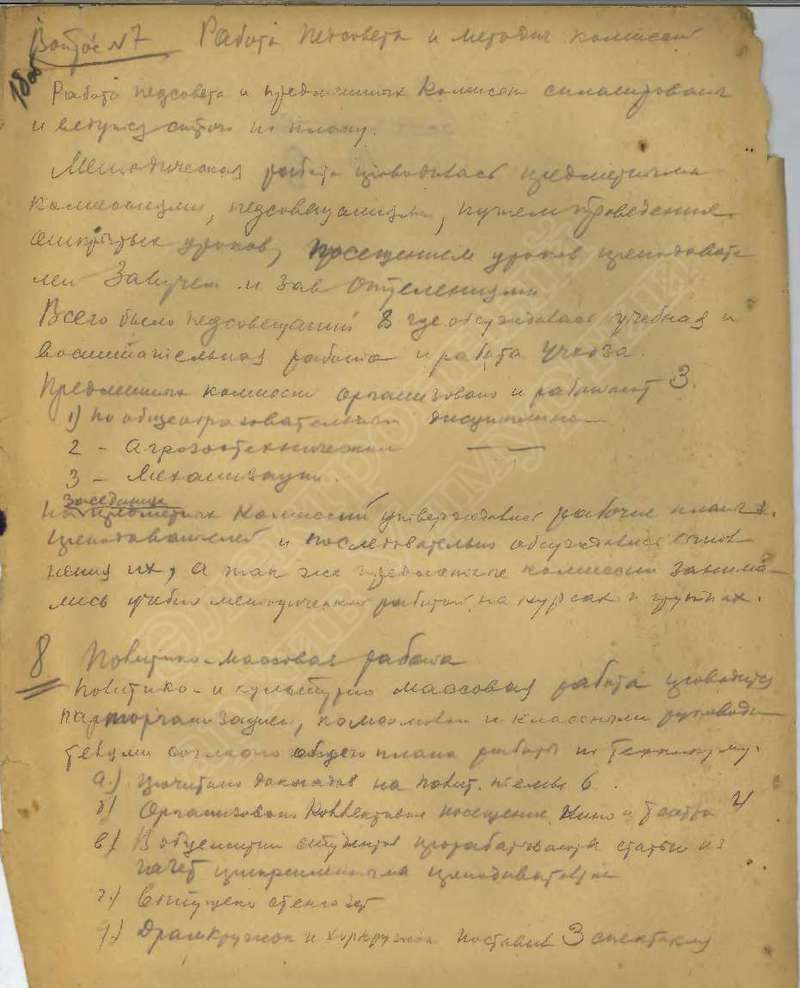 Вопрос №7 Работа педсовета и методич комиссий
Работа педсовета и предметных комиссий
и ведутся по плану.
Методическая работа проводилась предметными
комиссиями, педсовещаниями, путем проведения
открытых уроков, посещением уроков преподавате
лей Завучем и зав отделениями
Всего было педсовещаний 8 где обсуждались учебная и
воспитательная работа и работа учхоза.
Предметных комиссий организовано и работают 3.
1) по общеобразовательным дисциплинам
2 - Агрозоотехническая —
3 - Механизации.
На заседание предметных комиссий утверждались рабочие планы
преподавателей и последовательно обсуждались выпол
нения их, а так же предметные комиссии занима-
лись учебно методической работой на курсах и группах.
8 Политико-массовая работа
Политико- и культурно массовая работа проводится
парторганизацией, комсомолом и классными руководи
телями согласно общего плана работы по Техникуму.
а.) прочитано докладов на полит. темы 6.
б) Организовано коллективных посещение Кино и Театра 4
в) В общежитии студентов прорабатываются статьи из
газет прикрепленными преподавателями
г.) Выпущено стенгазет
д.) Драмкружок и хоркружок поставил 3 спектакля